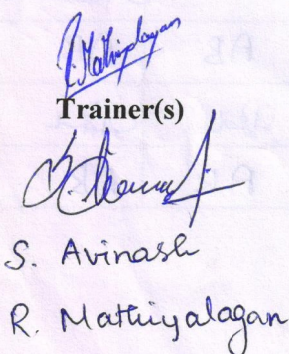 R. Mathiyalagan
Trainer(s)
S. Avinash
R. Mathiyalagan